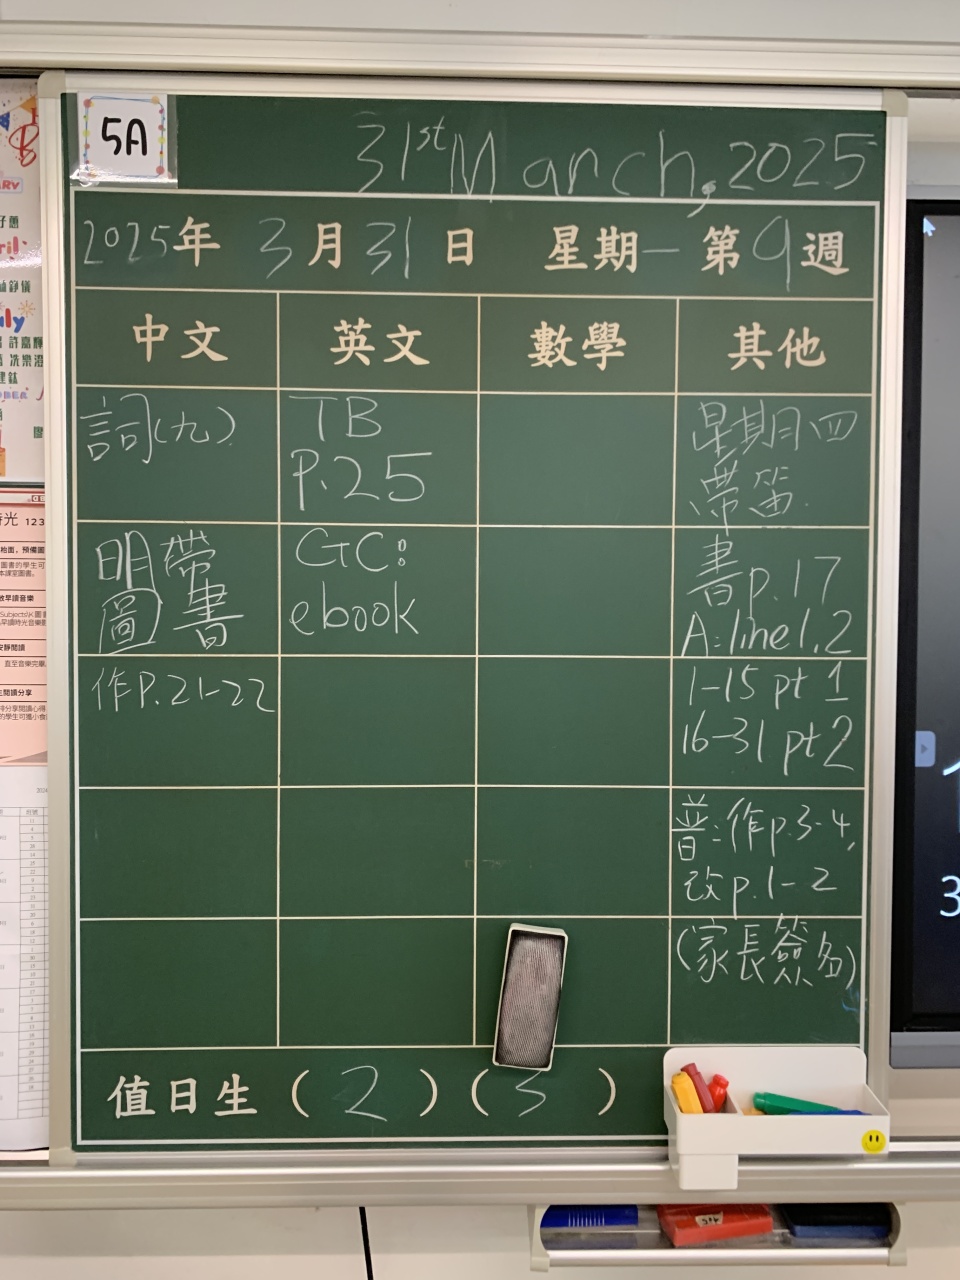 5A
31st March, 2025
2025年 3月31日 星期一 第9週
中文 英文 數學 其他
詞(九)
TB
P.25
星期四
帶笛.
明帶
圖書
GC:
ebook
書p.17
A: line 1, 2
作P.21-22
1-15 pt 1
16-31 pt 2
普:作p.3-4,
改p.1-2
(家長簽名)
值日生 ( 2 ) ( 3 )